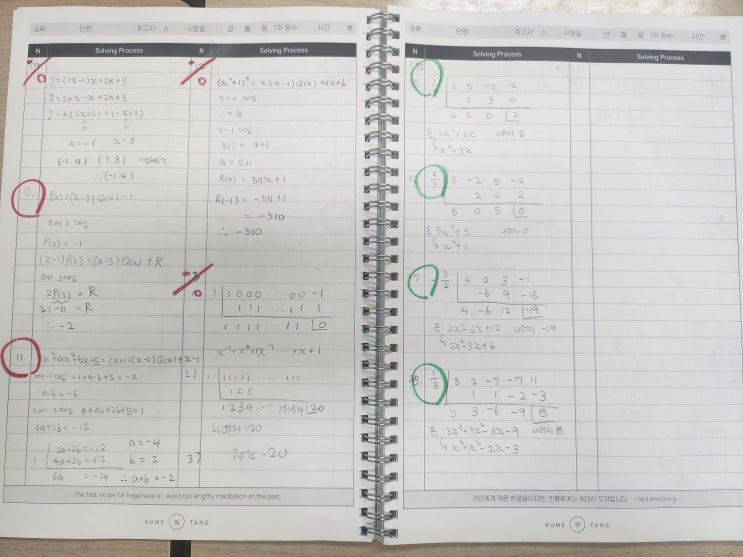 과목: 단원: 회고사 시험일: 년 월 일 1차 점수: 시간: 분
N Solving Process N Solving Process
y=(2k-1)x+2k+3
y=2kx-x+2k+3
y=k(2x+2)+(-x+3)
0 0
x=-1 x=3
(-1.4)
∴(-1.4)
10. P(x)=(x-3)Q(x)-1
x에 3 대입
P(3)=-1
(x-1)P(x)=(x-3)Q(x)+R
x에 3 대입
2P(3)=R
∴-2
11. x³+ax²+bx+5=(x+1)(x-2)Q(x)+x-1
x에 -1 대입 -1+a-b+5=-2
a-b=-6
x에 2 대입 8+4a+2b+5=1
4a+2b=-12
2a-2b=-12 a=-4
+ 4a+2b=-12 b=2
6a =-24 ∴a+b=-2
x=0 대입
1=b
x=1 대입
512=a+1
a=511
R(x)=511x+1
R(-1)=-511+1
=-510
∴-510
1 1000 .. 00 -1
1 1 1 .. 1 1 1
1 1 1 1 11 0
2) 1
1 2 3
1 2 3 4 ... 17 18 19 20
나머지 20
3) 20x-20
The first recipe for happiness is : avoid too lengthy meditation on the past.
KUME 16 TANG
과목: 단원: 회고사 시험일: 년 월 일 1차 점수: 시간: 분
N Solving Process N Solving Process
2 5 -3 2
1 3 0
2 6 0 2
몫 2x²+6x 나머지 2
x²+3x
2/5 5 -2 5 -2
2 0 2
5 0 5 0
몫 5x²+5 나머지 0
x²+1
7 3/2 4 0 3 -1
-6 9 -18
4 -6 12 -19
몫 4x²-6x+12 나머지 -19
2x²-3x+6
1/3 3 2 -7 -7 11
1 1 -2 -3
3 3 -6 -9 8
몫 3x³+3x²-6x-9 나머지 8
x³+x²-2x-3
저인에게 작은 한걸음이지만, 인류에게는 위대한 도약입니다. - Neil Armstrong -
KUME 17 TANG